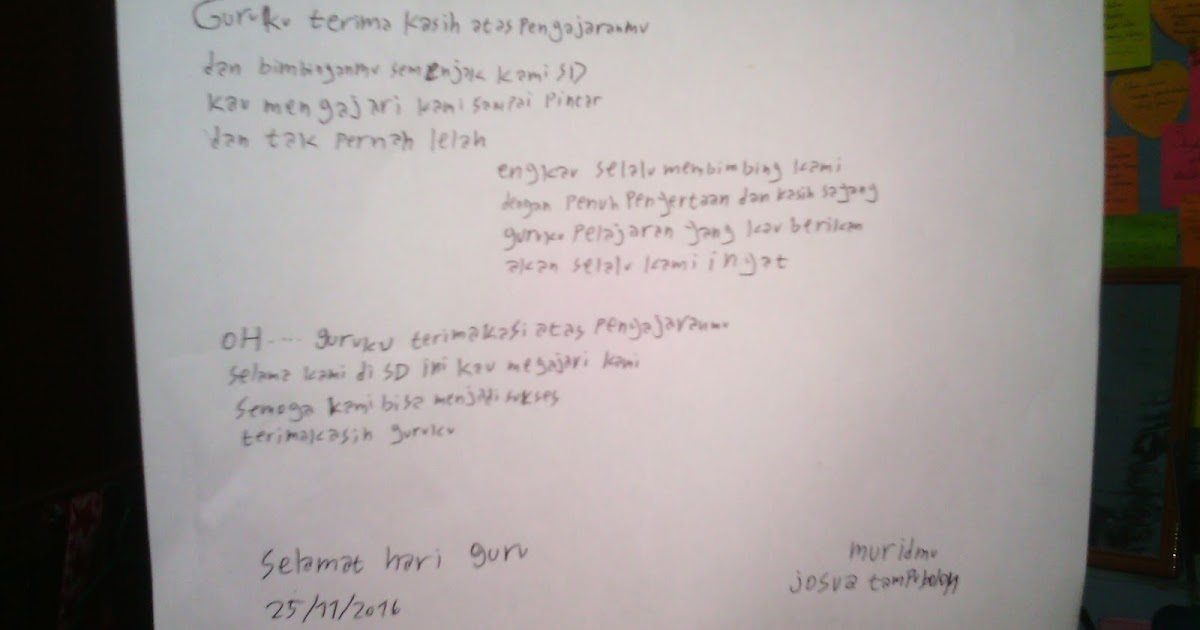 Guruku terima kasih atas Pengajaranmu
dan bimbinganmu semenjak kami SD
kau mengajari kami sampai Pintar
dan tak Pernah lelah
engkau selalu membimbing kami
dengan Penuh Penyertaan dan kasih sayang
guruku Pelajaran yang kau berikan
akan selalu kami ingat
OH.... guruku terimakasi atas Pengajaranmu
selama kami di SD ini kau megajari kami
semoga kami bisa menjadi sukses
terimakasih guruku
Selamat hari guru
muridmu
josua tamPubolon
25/11/2016